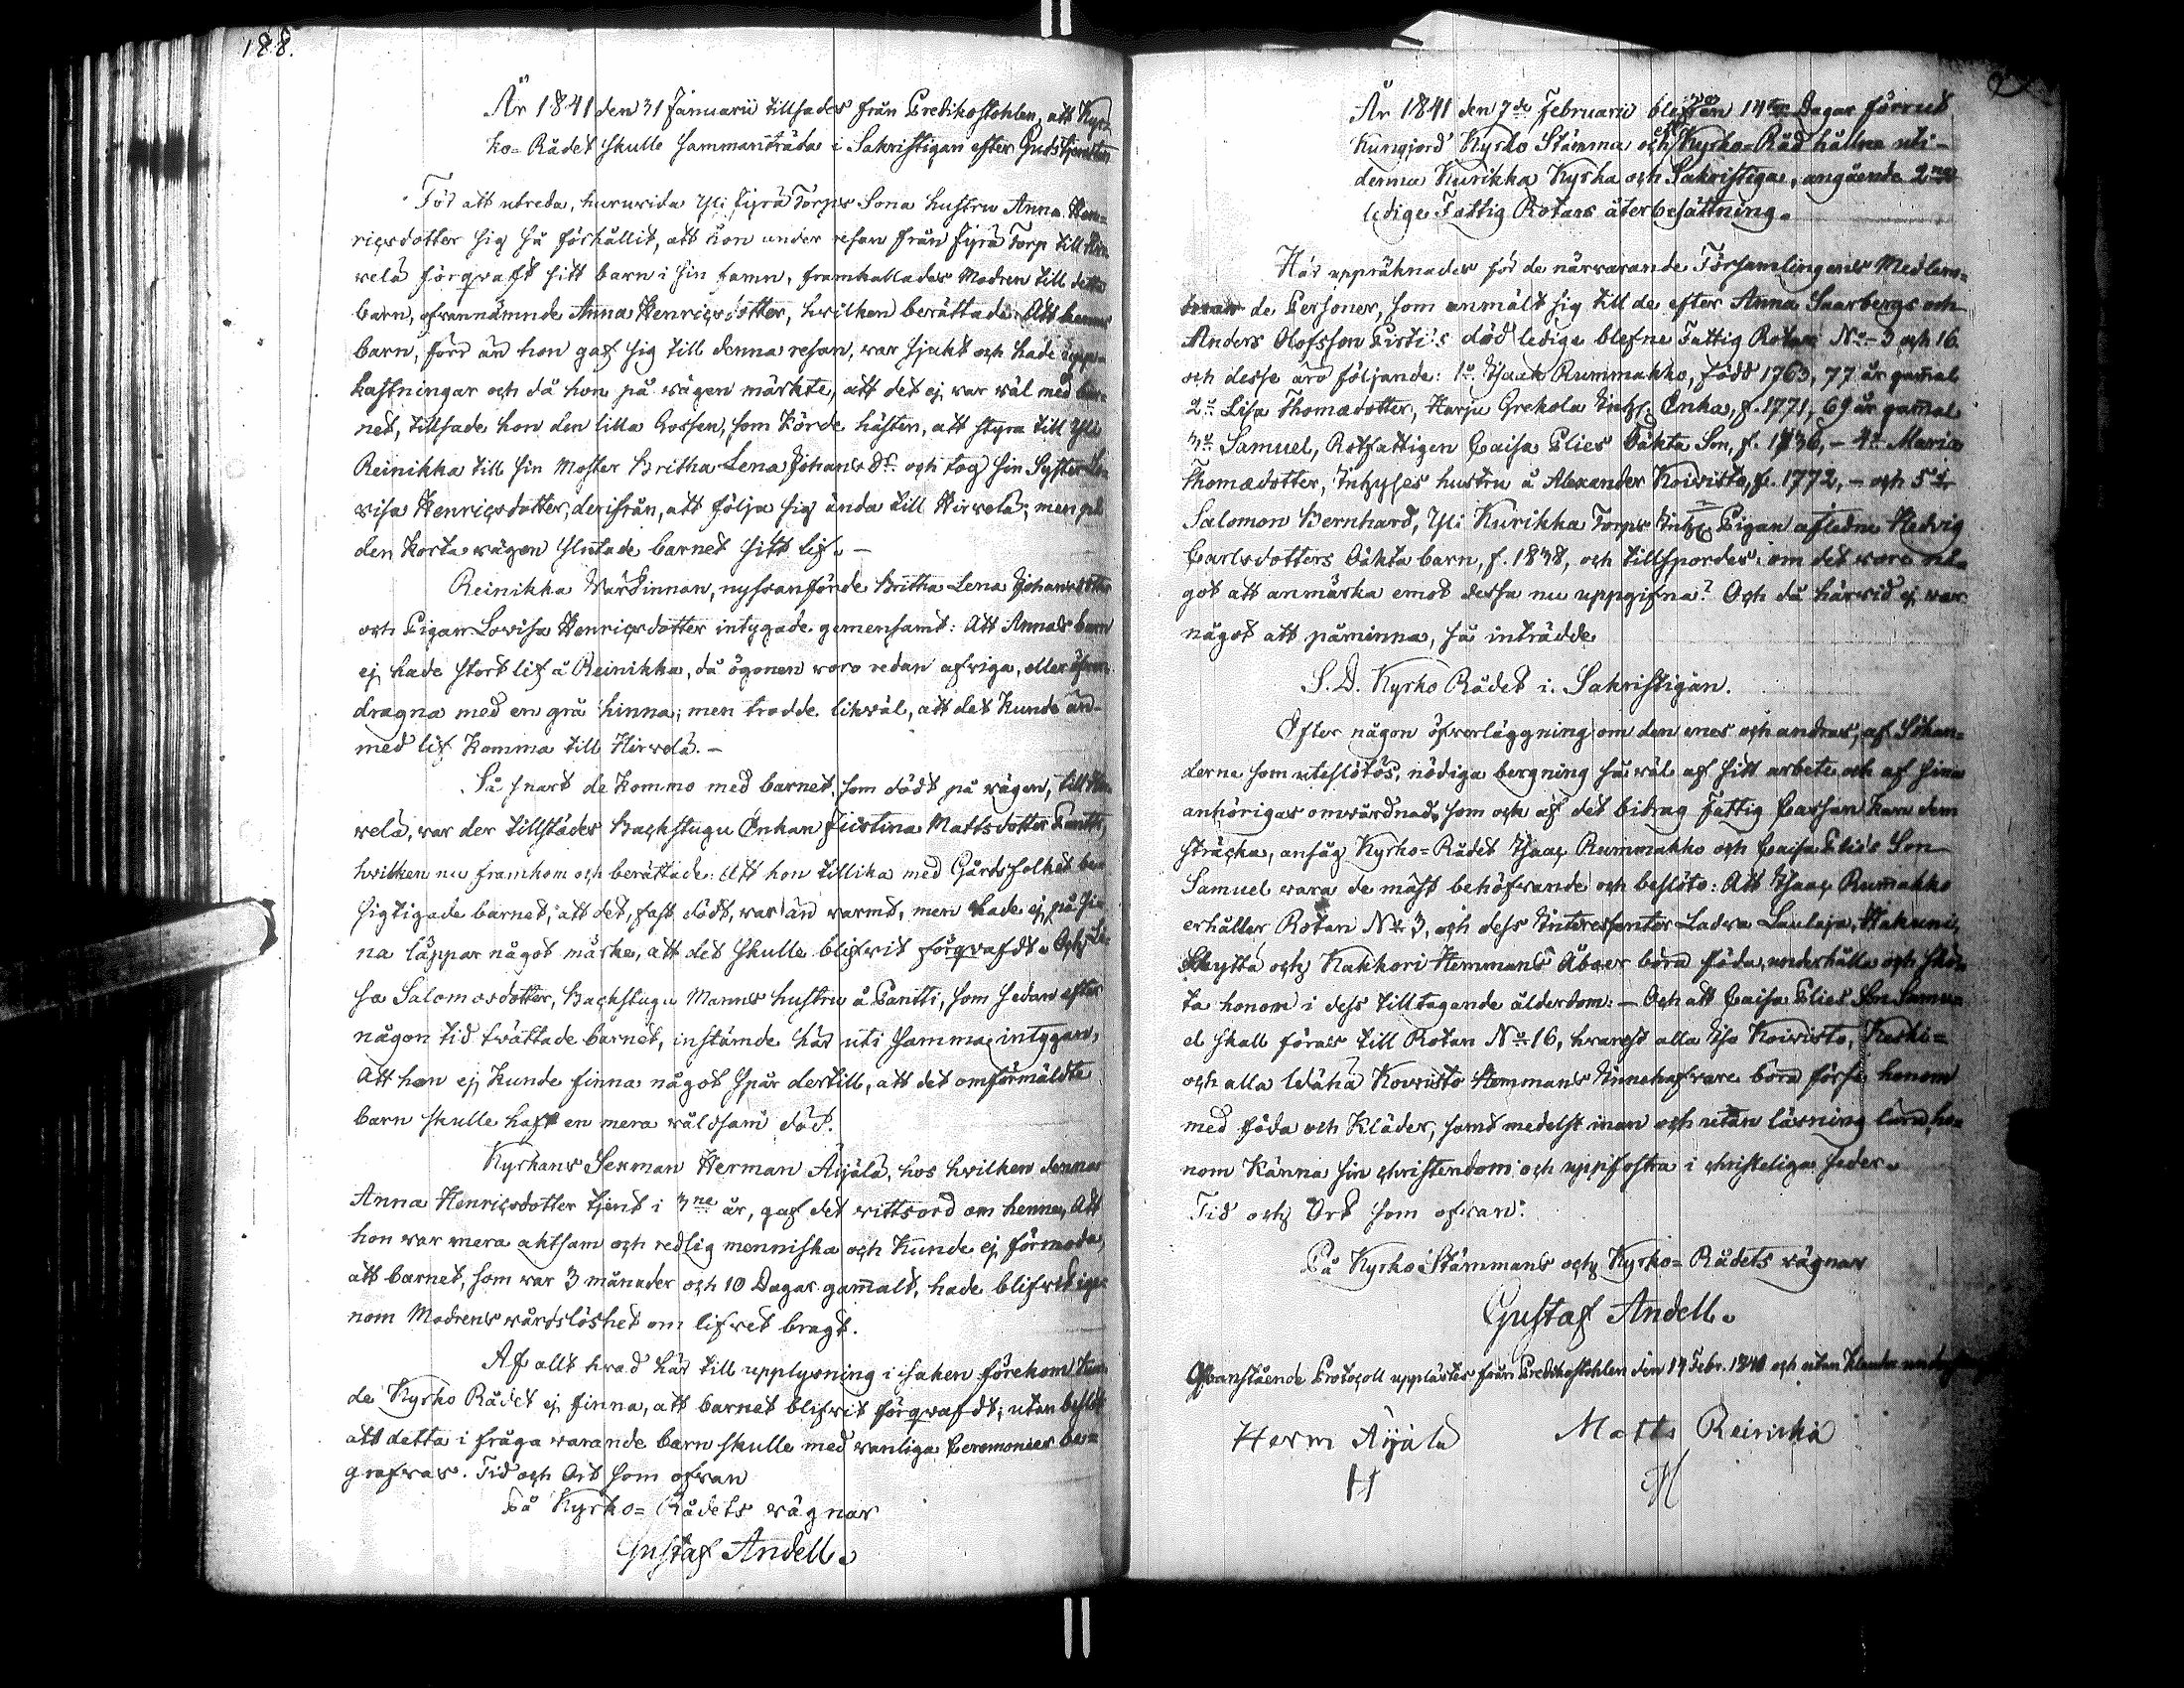 188.
År 1841 den 31 Januarii tillsades från Predikostohlen, att Kyr-
ko=Rådet skulle sammanträda i Sakristigan efter Gudstjensten
För att utreda, huruvida Yli Jyrä Torps Sona hustru Anna Hen-
riçsdotter sig så förhållit, att hon under resan från Jyrä Torp till Hir-
velä förqvaft sitt barn i sin famn, framkallades Modren till detta
barn, ofvannämnde Anna Henriçsdotter, hvilken berättade: Att hennes
barn, förr än hon gaf sig till denna resan, war sjukt och hade upp-
kastningar och då hon på wägen märkte, att det ej war wäl med bar-
net, tillsade hon den lilla Gossen, som körde hästen, att styra till Yli
Reinikka till sin Moster Britha Lena Johans dr. och tog sin Syster Lo-
visa Henriçsdotter, derifrån, att följa sig ända till Hirvelä; men på
den korta wägen slutade barnet sitt lif. —
Reinikka Värdinnan, nyssanförde Britha Lena Johansdotter
och Pigan Lovisa Henriçsdotter intygade gemensamt: Att Annas barn
ej hade stort lif å Reinikka, då ögonen woro redan afviga, eller öfver-
dragna med en grå hinna; men trodde likwäl, att det kunde än-
med lif komma till Hirvelä. —
Så snart de kommo med barnet, som dödt på wägen, till Hir-
velä, war der tillstädes Backstugu Enkan Justina Mattsdotter Pantti,
hvilken nu framkom och berättade: Att hon tillika med Gårdsfolket be-
sigtigade barnet, att det, fast dödt, war än warmt, men hade ej på si-
na läppar något märke, att det skulle blifvit förqvafdt. Och Li-
sa Salomosdotter, Backstugu Manns hustru å Pantti, som sedan efter
någon tid twättade barnet, instämde här uti samma intygan,
Att hon ej kunde finna något spår dertill, att det omförmäldte
barn skulle haft en mera wåldsam död.
Kyrkans Sexman Herman Äijälä, hos hvilken denna
Anna Henriçsdotter tjent i 3ne år, gaf det wittsord om henne, Att
hon war mera aktsam och redlig menniska och kunde ej förmoda,
att barnet, som war 3 månader och 10 Dagar gammalt, hade blifvit ige-
nom Modrens wårdslöshet om lifvet bragt.
Af allt hvad här till upplysning i saken förekom kun-
de Kyrko Rådet ej finna, att barnet blifvit förqvafdt; utan beslöt
att detta i fråga warande barn skulle med wanliga Ceremonier be=
grafvas. Tid och Ort som ofvan
På Kyrko=Rådets wägnar
Gustaf Andell.
År 1841 den 7de Februarii blef en 14ton Dagar förrut
Kungjord Kyrko Stämma och Kyrko=Råd hållne uti-
denna Kurikka Kyrka och Sakristiga, angående 2ne
ledige Fattig Rotars återbesättning.
Här uppräknades för de närwarande Församlingenes Medlem-
mar de Personer, som anmält sig till de efter Anna Saarbergs och
Anders Olofsson Pirti's död ledige blefne Fattig Rotar No 3 och 16.
och desse äro följande: 1o Isaak Rummakko, född 1763, 77 år gammal
2o Lisa Thomædotter, Harju Grekola Inhs. Enka, f. 1771, 69 år gammal
3o Samuel, Rotfattigen Caisa Elies Oäkta Son, f. 1836, – 4o Maria
Thomædotter, Inhyses hustru å Alexander Koivisto, f. 1772, – och 5o
Salomon Bernhard, Yli Kurikka Torps Inhs Pigan afledne Hedvig
Carlsdotters Oäkta barn, f. 1838, och tillspordes: om det wore nå-
got att anmärka emot dessa nu uppgifna? Och då härvid ej war
något att påminna, så inträdde
S. D. Kyrko Rådet i Sakristigan.
Efter någon öfverläggning om den enes och andras, af Sökan-
derne som uteslötos, nödiga bergning så wäl af sitt arbete och af sina
anhörigas omwårdnad, som och af det bidrag Fattig Cassan kan dem
sträcka, ansåg Kyrko=Rådet Isaaç Rummakko och Caisa Elies Son
Samuel wara de mäst behöfvande och beslöto: Att Isaaç Rumakko
erhåller Rotan No 3, och dess Interessenter Ladva Laulaja, Hakuni,
Skyttä och Kakkori Hemmans Åboer böra föda, underhålla och skö-
ta honom i dess tilltagande ålderdom: — Och att Caisa Elies Son Samu-
el skall föras till Rotan No 16, hvarest alla Iso Koivisto, Keski=
och alla Wähä Koivisto Hemmans Innehafvare böra förse honom
med föda och Kläder, samt medelst inan och utan läsning lära ho-
nom känna sin christendom och uppfostra i christeliga seder.
Tid och Ort som ofvan:
På Kyrko Stämmans och Kyrko=Rådets wägnar
Gustaf Andell.
Ofvanstående Protocoll upplästes från Predikostohlen den 14 Febr. 1841 och utan klander
Herm Äijälä Matts Reinikka
H